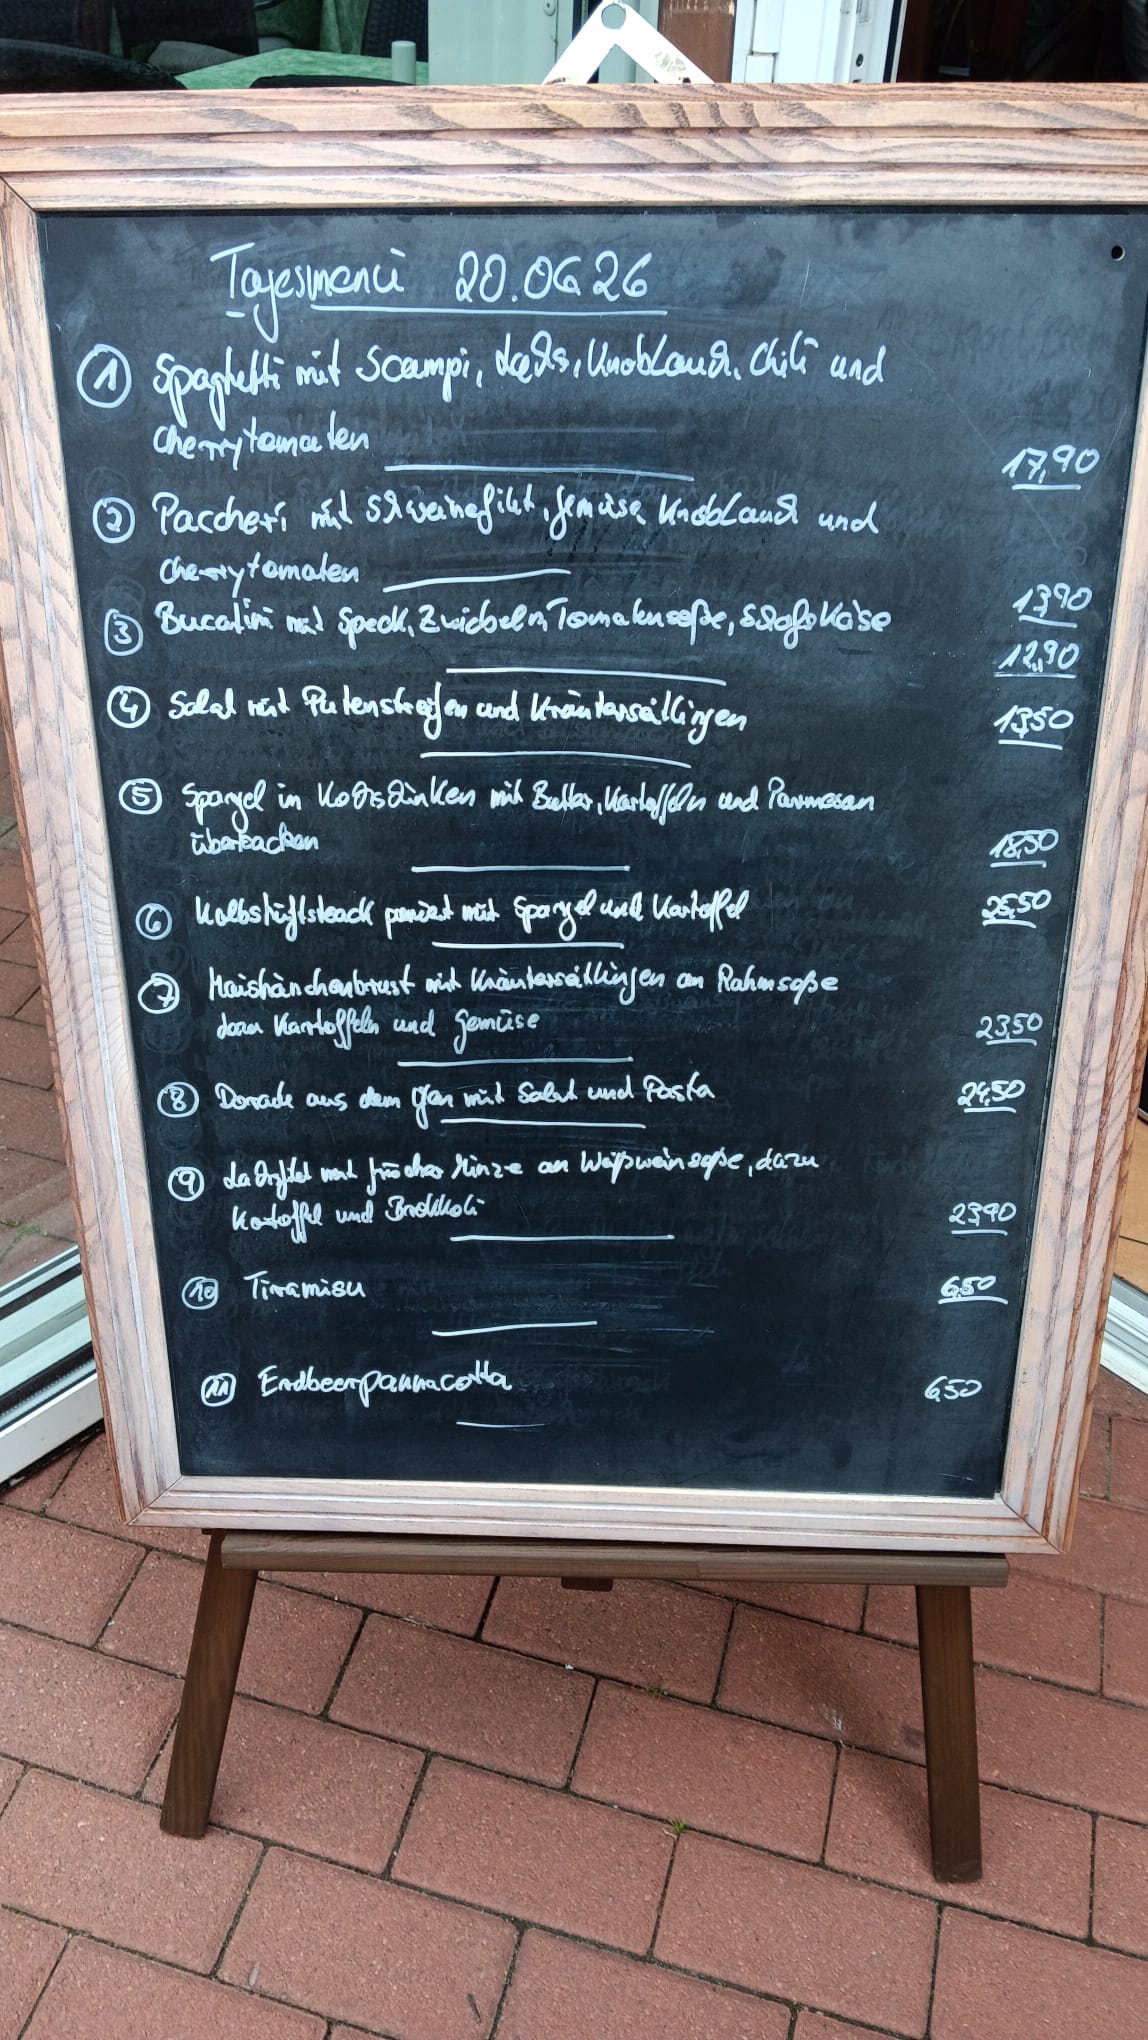 Tagesmenü 20.06.26
1 Spaghetti mit Scampi, Lachs, Knoblauch, Chili und
Cherrytomaten 17,90
2 Paccheri mit Schweinefilet, Gemüse, Knoblauch und
Cherrytomaten 13,90
3 Bucatini mit Speck, Zwiebeln, Tomatensoße, Schafskäse 12,90
4 Salat mit Putenstreifen und Kräutersaitlingen 13,50
5 Spargel in Kochschinken mit Butter, Kartoffeln und Parmesan
überbacken 18,50
6 Kalbshüftsteack paniert mit Spargel und Kartoffel 25,50
7 Maishänchenbrust mit Kräutersaitlingen an Rahmsoße
dazu Kartoffeln und Gemüse 23,50
8 Dorade aus dem Ofen mit Salat und Pasta 24,50
9 Lachsfilet mit frischer Minze an Weißweinsoße, dazu
Kartoffel und Brokkoli 23,90
10 Tiramisu 6,50
11 Erdbeerpannacotta 6,50